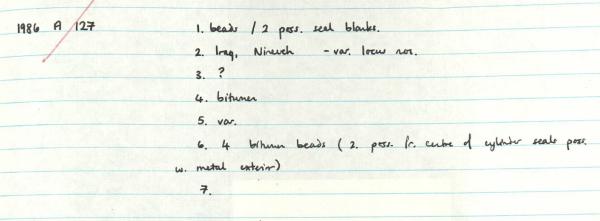 1986 A 127 1. beads / 2 poss. seal blanks.
2. Iraq, Nineveh - var. locus nos.
3. ?
4. bitumen
5. var.
6. 4 bitumen beads (2. poss. fr. centre of cylinder seals poss.
w. metal exterior)
7.